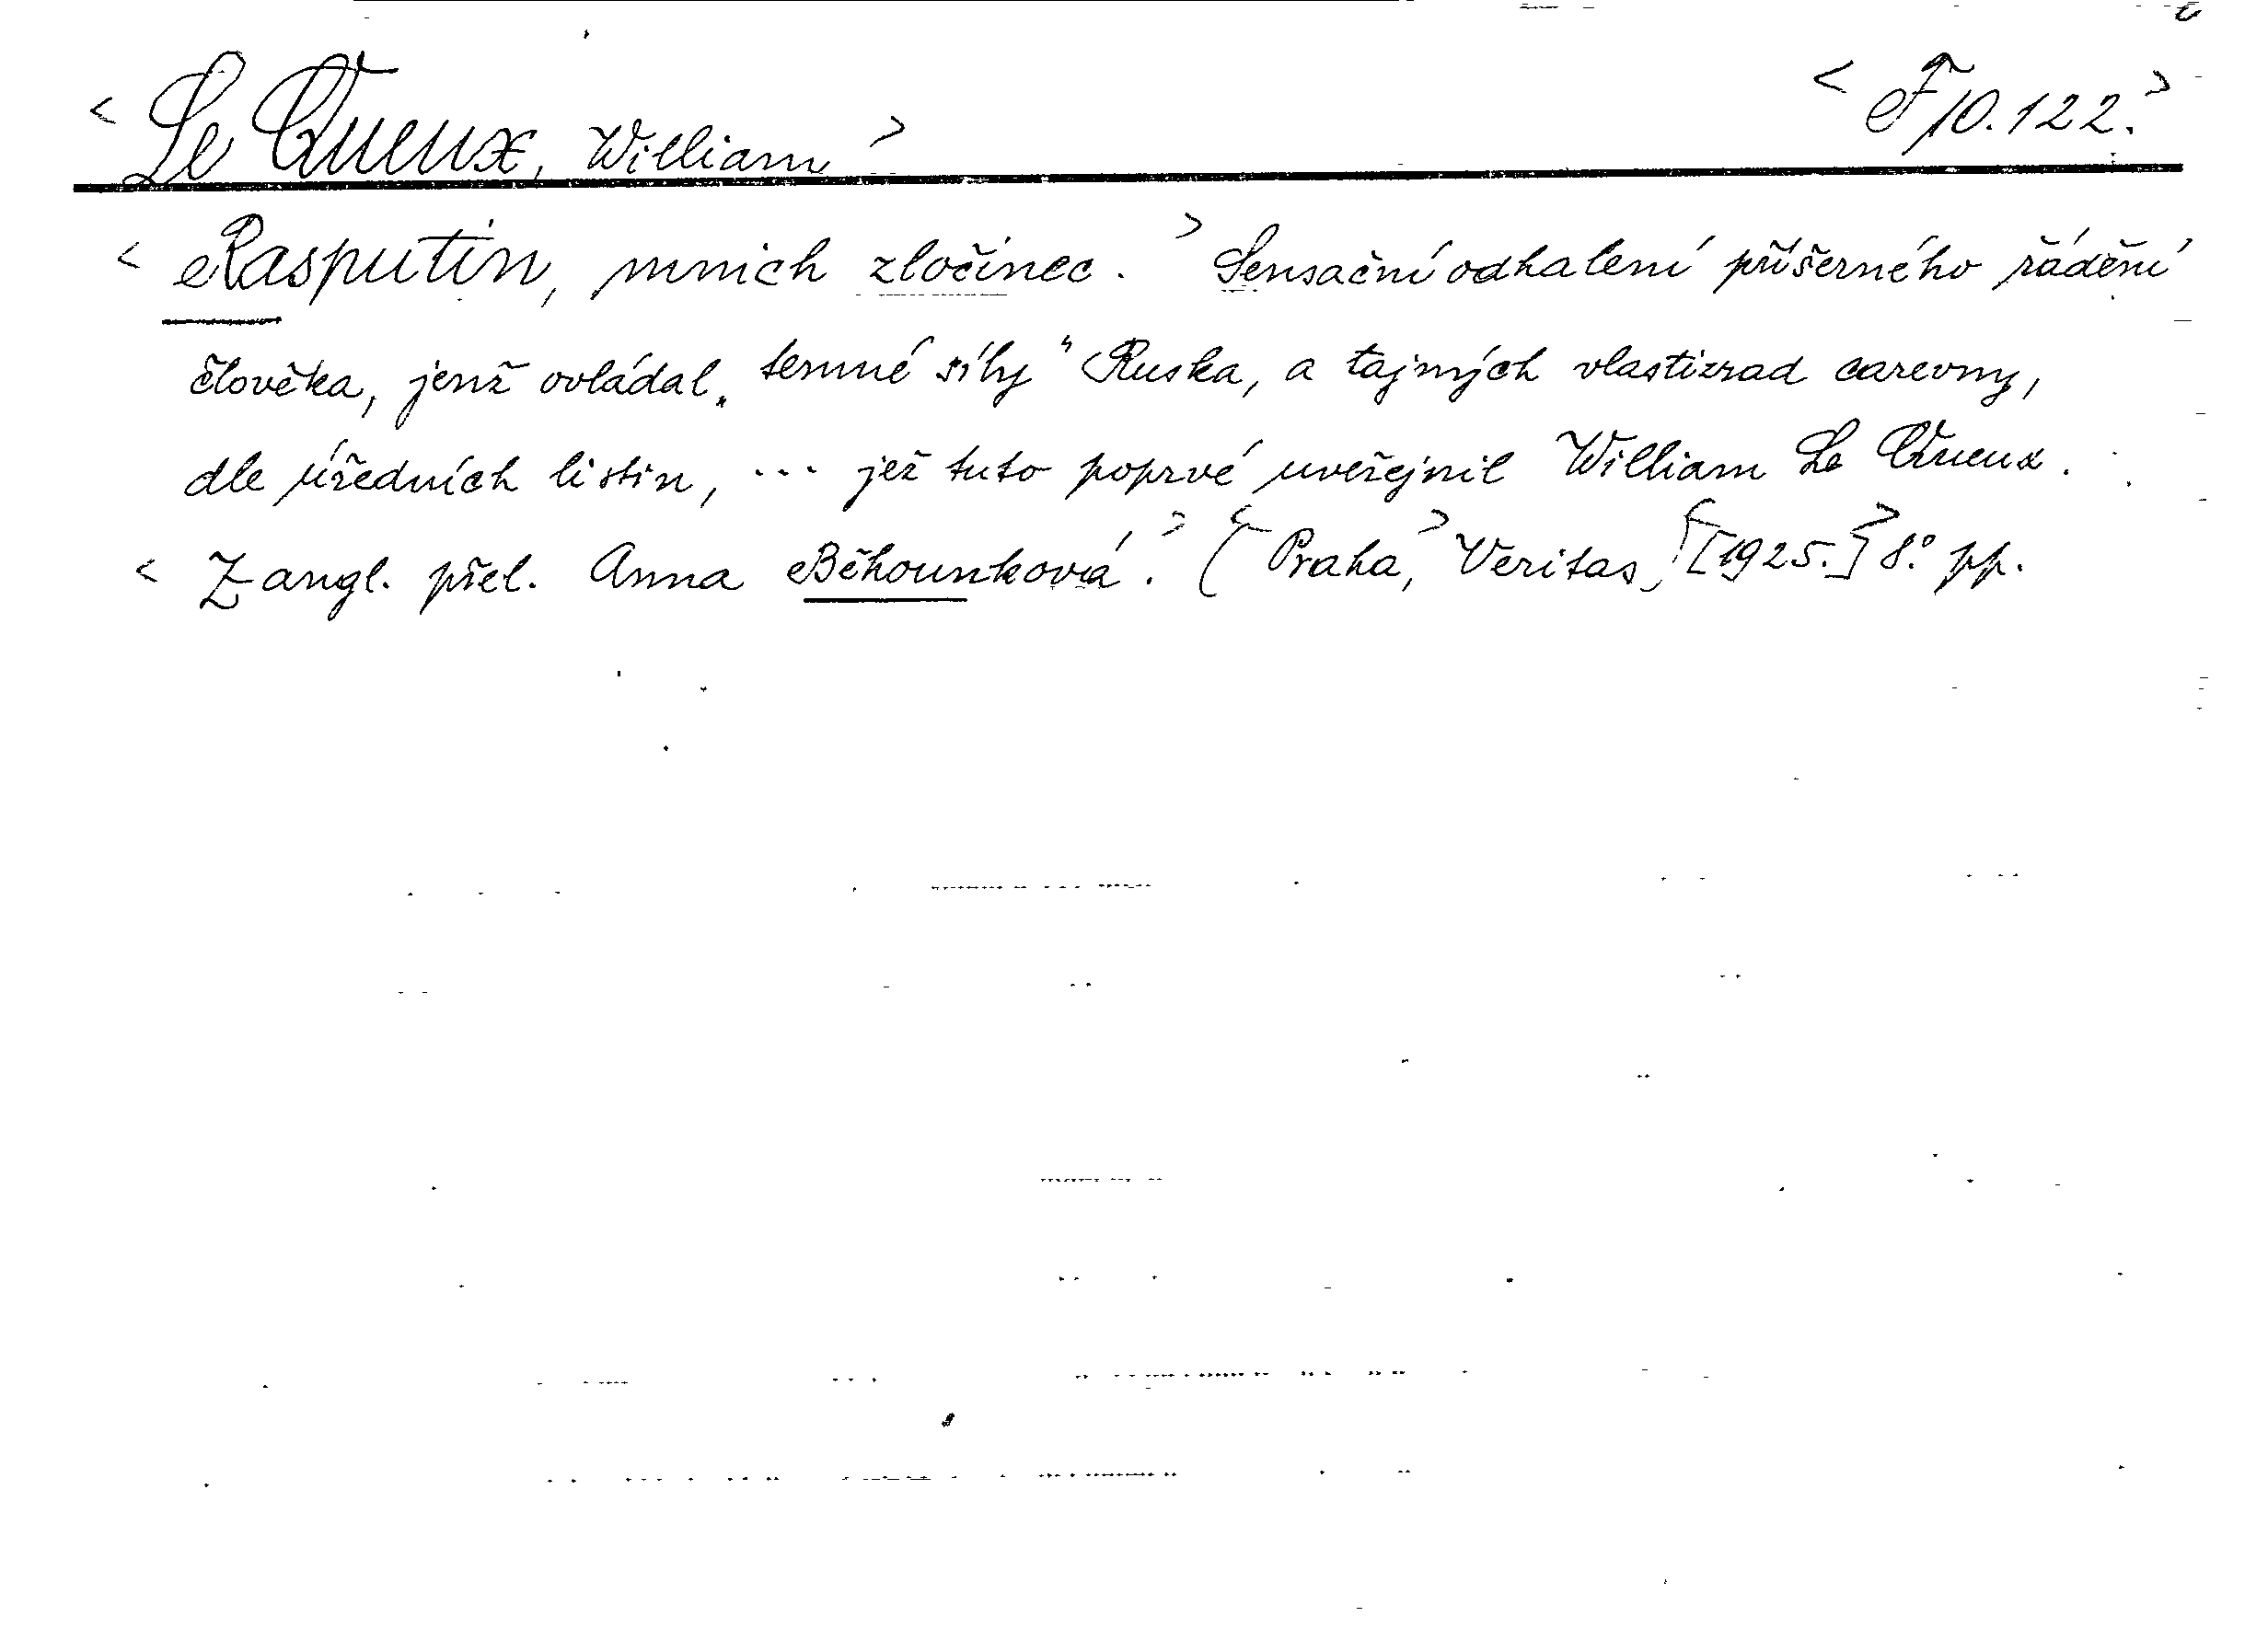 < Le Queux, William > < F 10.122. >
< Rasputin, mnich zločinec. > Sensační odhalení příšerného řádění
člověka, jenž ovládal „temné síly" Ruska, a tajných vlastizrad carevny,
dle úředních listin, ... jež tuto poprvé uveřejnil William Le Queux.
< Z angl. přel. Anna Běhounková. > (< Praha, > Veritas,) < [1925.] > 8° pp.